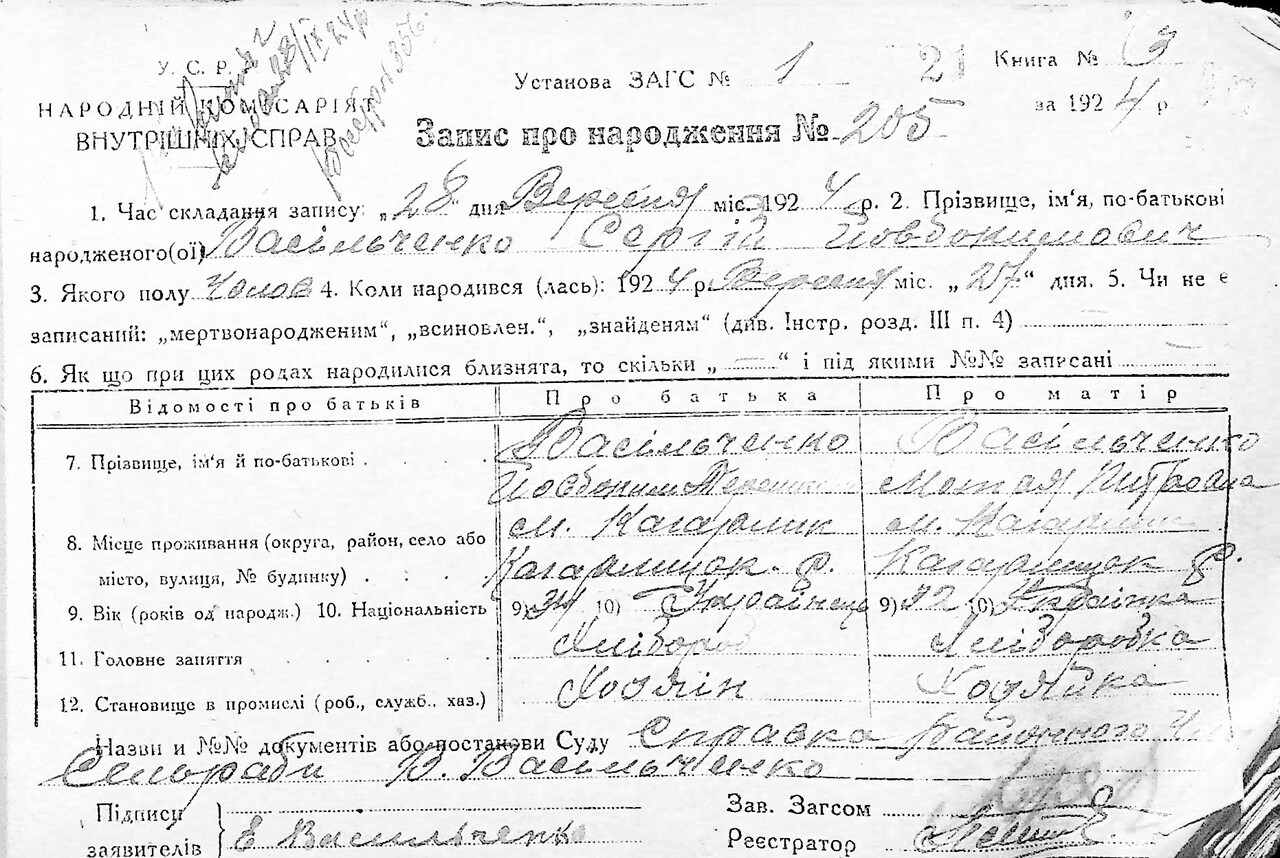 У. С. Р.
НАРОДНІЙ КОМІСАРІЯТ
ВНУТРІШНІХ СПРАВ
Установа ЗАГС № 1 21
Книга № 3
за 1924 р
Запис про народження № 205
1. Час складання запису: „28" дня Вересня міс. 1924 р. 2. Прізвище, ім'я, по-батькові
народженого(ої) Васільченко Сергій Йовдокимович
3. Якого полу Чолов 4. Коли народився (лась): 1924 р. Вересня міс. „27" дня. 5. Чи не є
записаний: „мертвонародженим", „всиновлен.", „знайденям" (див. Інстр. розд. III п. 4)
6. Як що при цих родах народилися близнята, то скільки „—" і під якими №№ записані
Відомості про батьків Про батька Про матір
7. Прізвище, ім'я й по-батькові Васільченко Васільченко
Йовдоким Мотря Питровна
8. Місце проживання (округа, район, село або м. Кагарлик м. Кагарлик
місто, вулиця, № будинку) Кагарлицьк. р. Кагарлицьк р.
9. Вік (років од народж.) 10. Національність 9) 34 10) Українець 9) 32 10) Українка
11. Головне заняття Хлібороб Хліборобка
12. Становище в промислі (роб., служб., хаз.) Хозяін Хозяйка
Назви и №№ документів або постанови Суду Справка Районного
Сельради В. Васільченко
Підписи
заявителів Е Васильченко
Зав. Загсом
Реєстратор